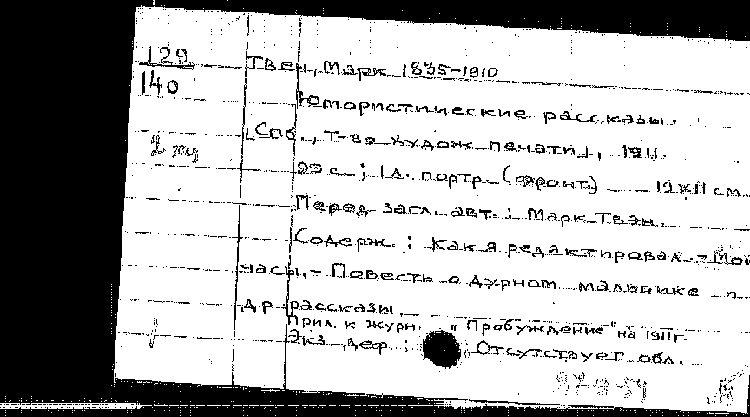 129
140
2 экз
Твен, Марк 1835-1910
Юмористические рассказы.
[Спб., т-во худож. печати], 1911.
99 с.; 1 л. портр. (фронт) 19х11 см.
Перед загл. авт.: Марк Твэн.
Содерж.: Как я редактировал. - Мои
часы. - Повесть о дурном мальчике и
др. рассказы.
Прил. к журн. „Пробуждение" на 1911 г.
Экз. деф.: Отсутствует обл.